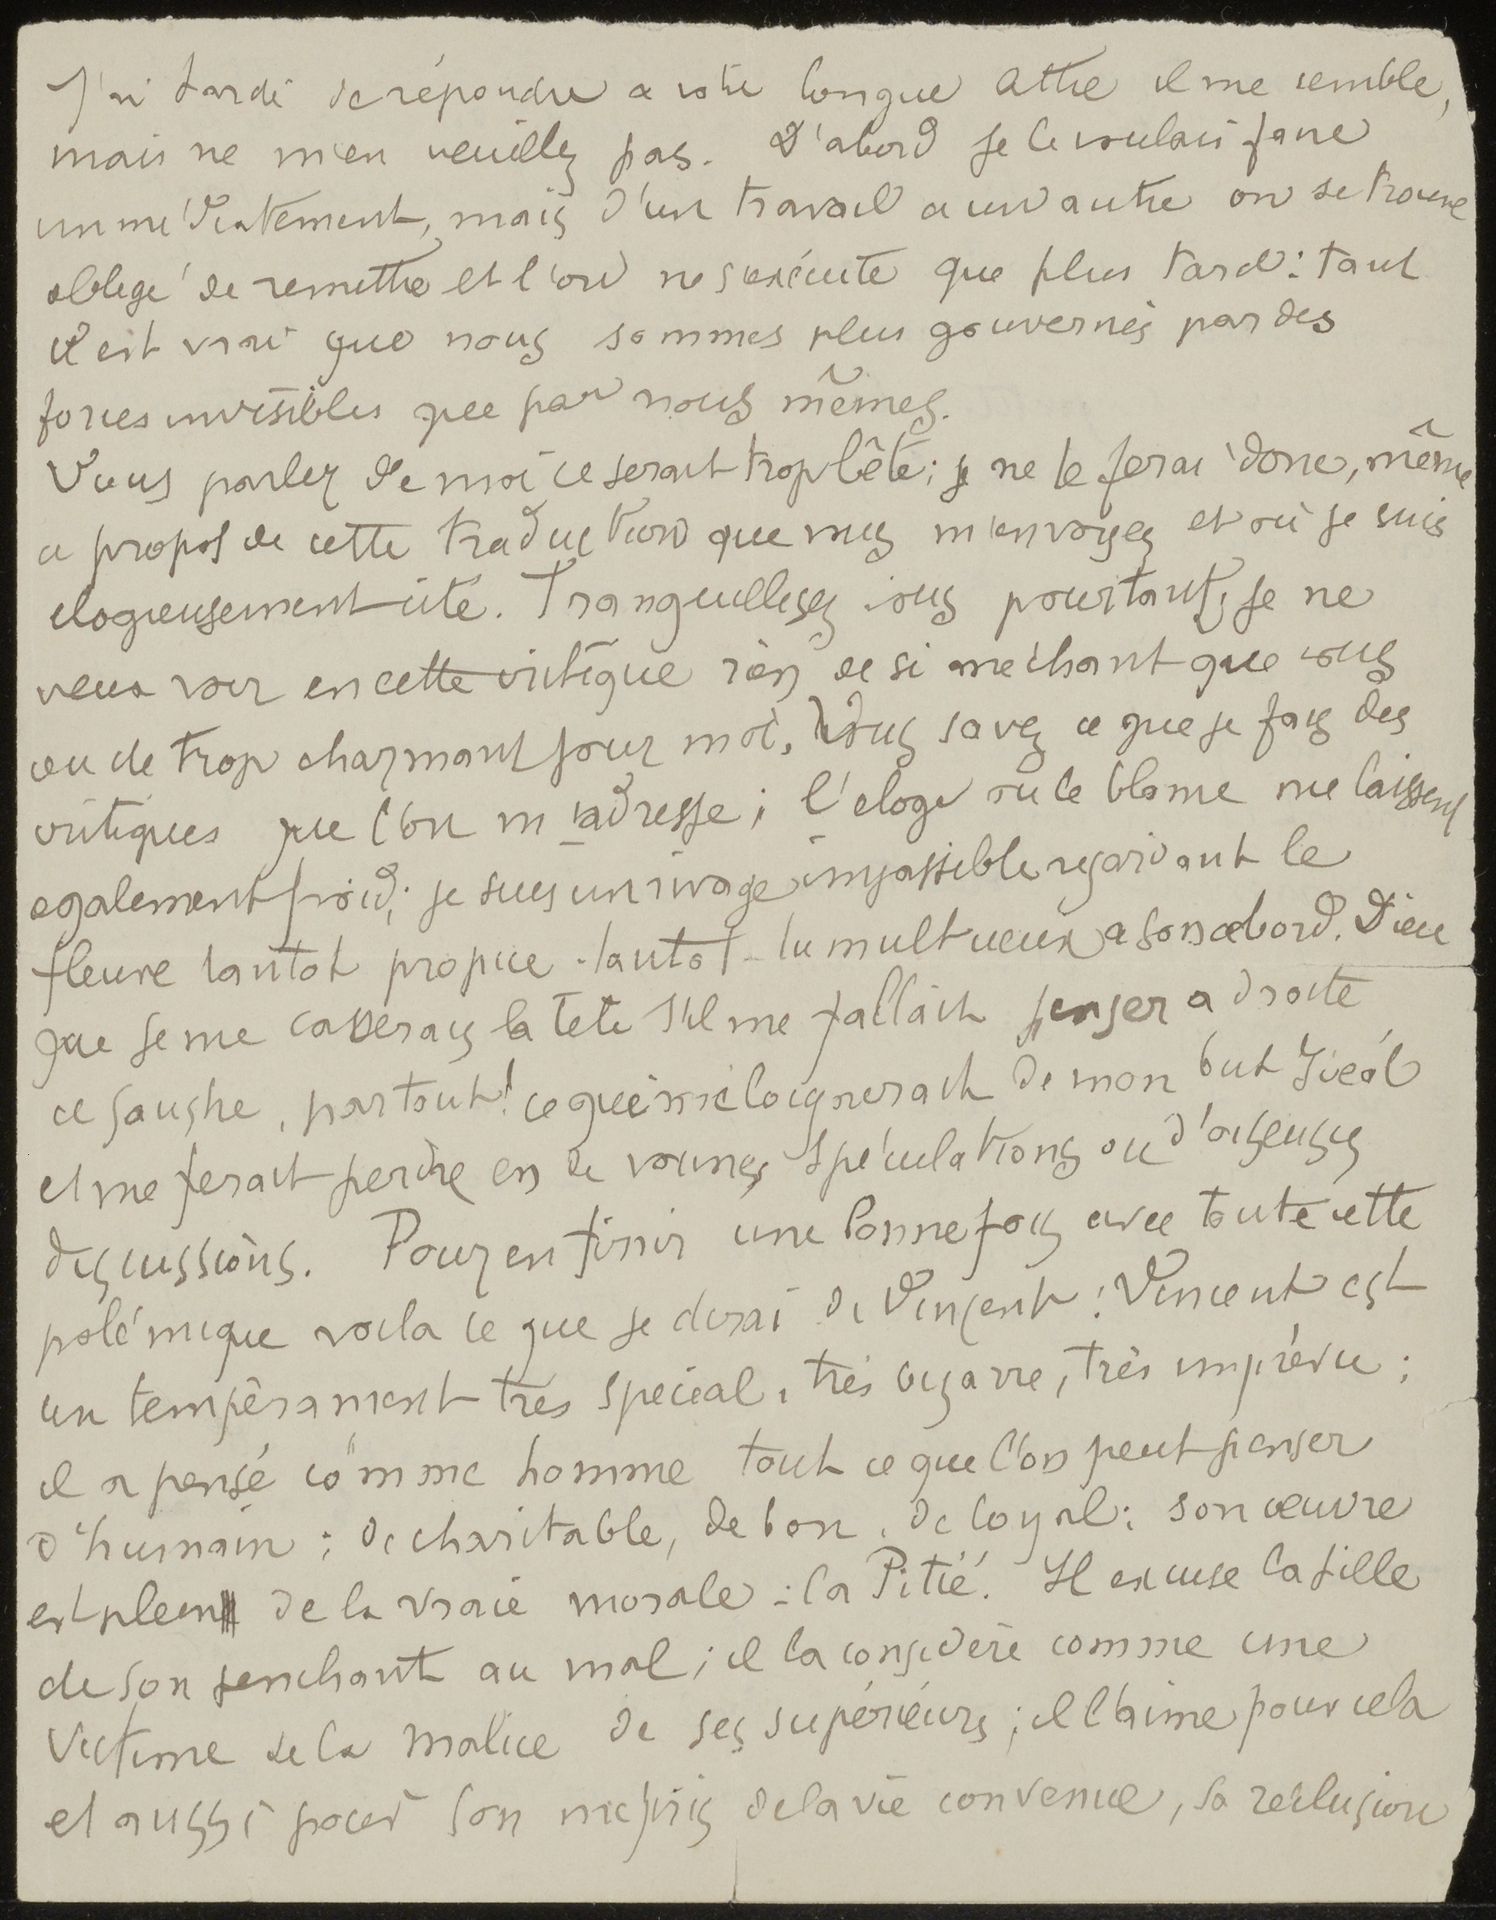 J'ai tardé de répondre a votre longue lettre il me semble,
mais ne m'en veuillez pas. D'abord je le voulais faire
immédiatement, mais d'un travail a un autre on se trouve
obligé de remettre et l'on ne s'exécute que plus tard: tant
il est vrai que nous sommes plus gouvernés par des
forces invisibles que par nous mêmes.
Vous parler de moi ce serait trop bête; je ne le ferai donc, même
a propos de cette traduction que vous m'envoyez et où je suis
elogieusement cité. Tranquillisez vous pourtant, je ne
veux voir en cette critique rien de si méchant que vous
ou de trop charmant pour moi. Vous savez ce que je fais des
critiques que l'on m'adresse; l'eloge ou le blame me laissent
egalement froid; je suis un rivage impassible regardant le
fleuve tantot propice tantot tumultueux a son abord. Dieu
que je me casserais la tete s'il me fallait penser a droite
a gauche, partout! ce qui m'eloignerait de mon but Idéal
et me ferait perdre en de vaines spéculations ou d'oiseuses
discussions. Pour en finir une bonne fois avec toute cette
polémique voila ce que je dirai de Vincent: Vincent est
un tempérament très special, très bizarre, très imprévu;
il a pensé comme homme tout ce que l'on peut penser
d'humain; de charitable, de bon, de loyal; son œuvre
est plein de la vraie morale: la Pitié. Il excuse la fille
de son penchant au mal; il la considère comme une
victime de la malice de ses supérieurs; il l'aime pour cela
et aussi pour son mépris de la vie convenue, sa réclusion